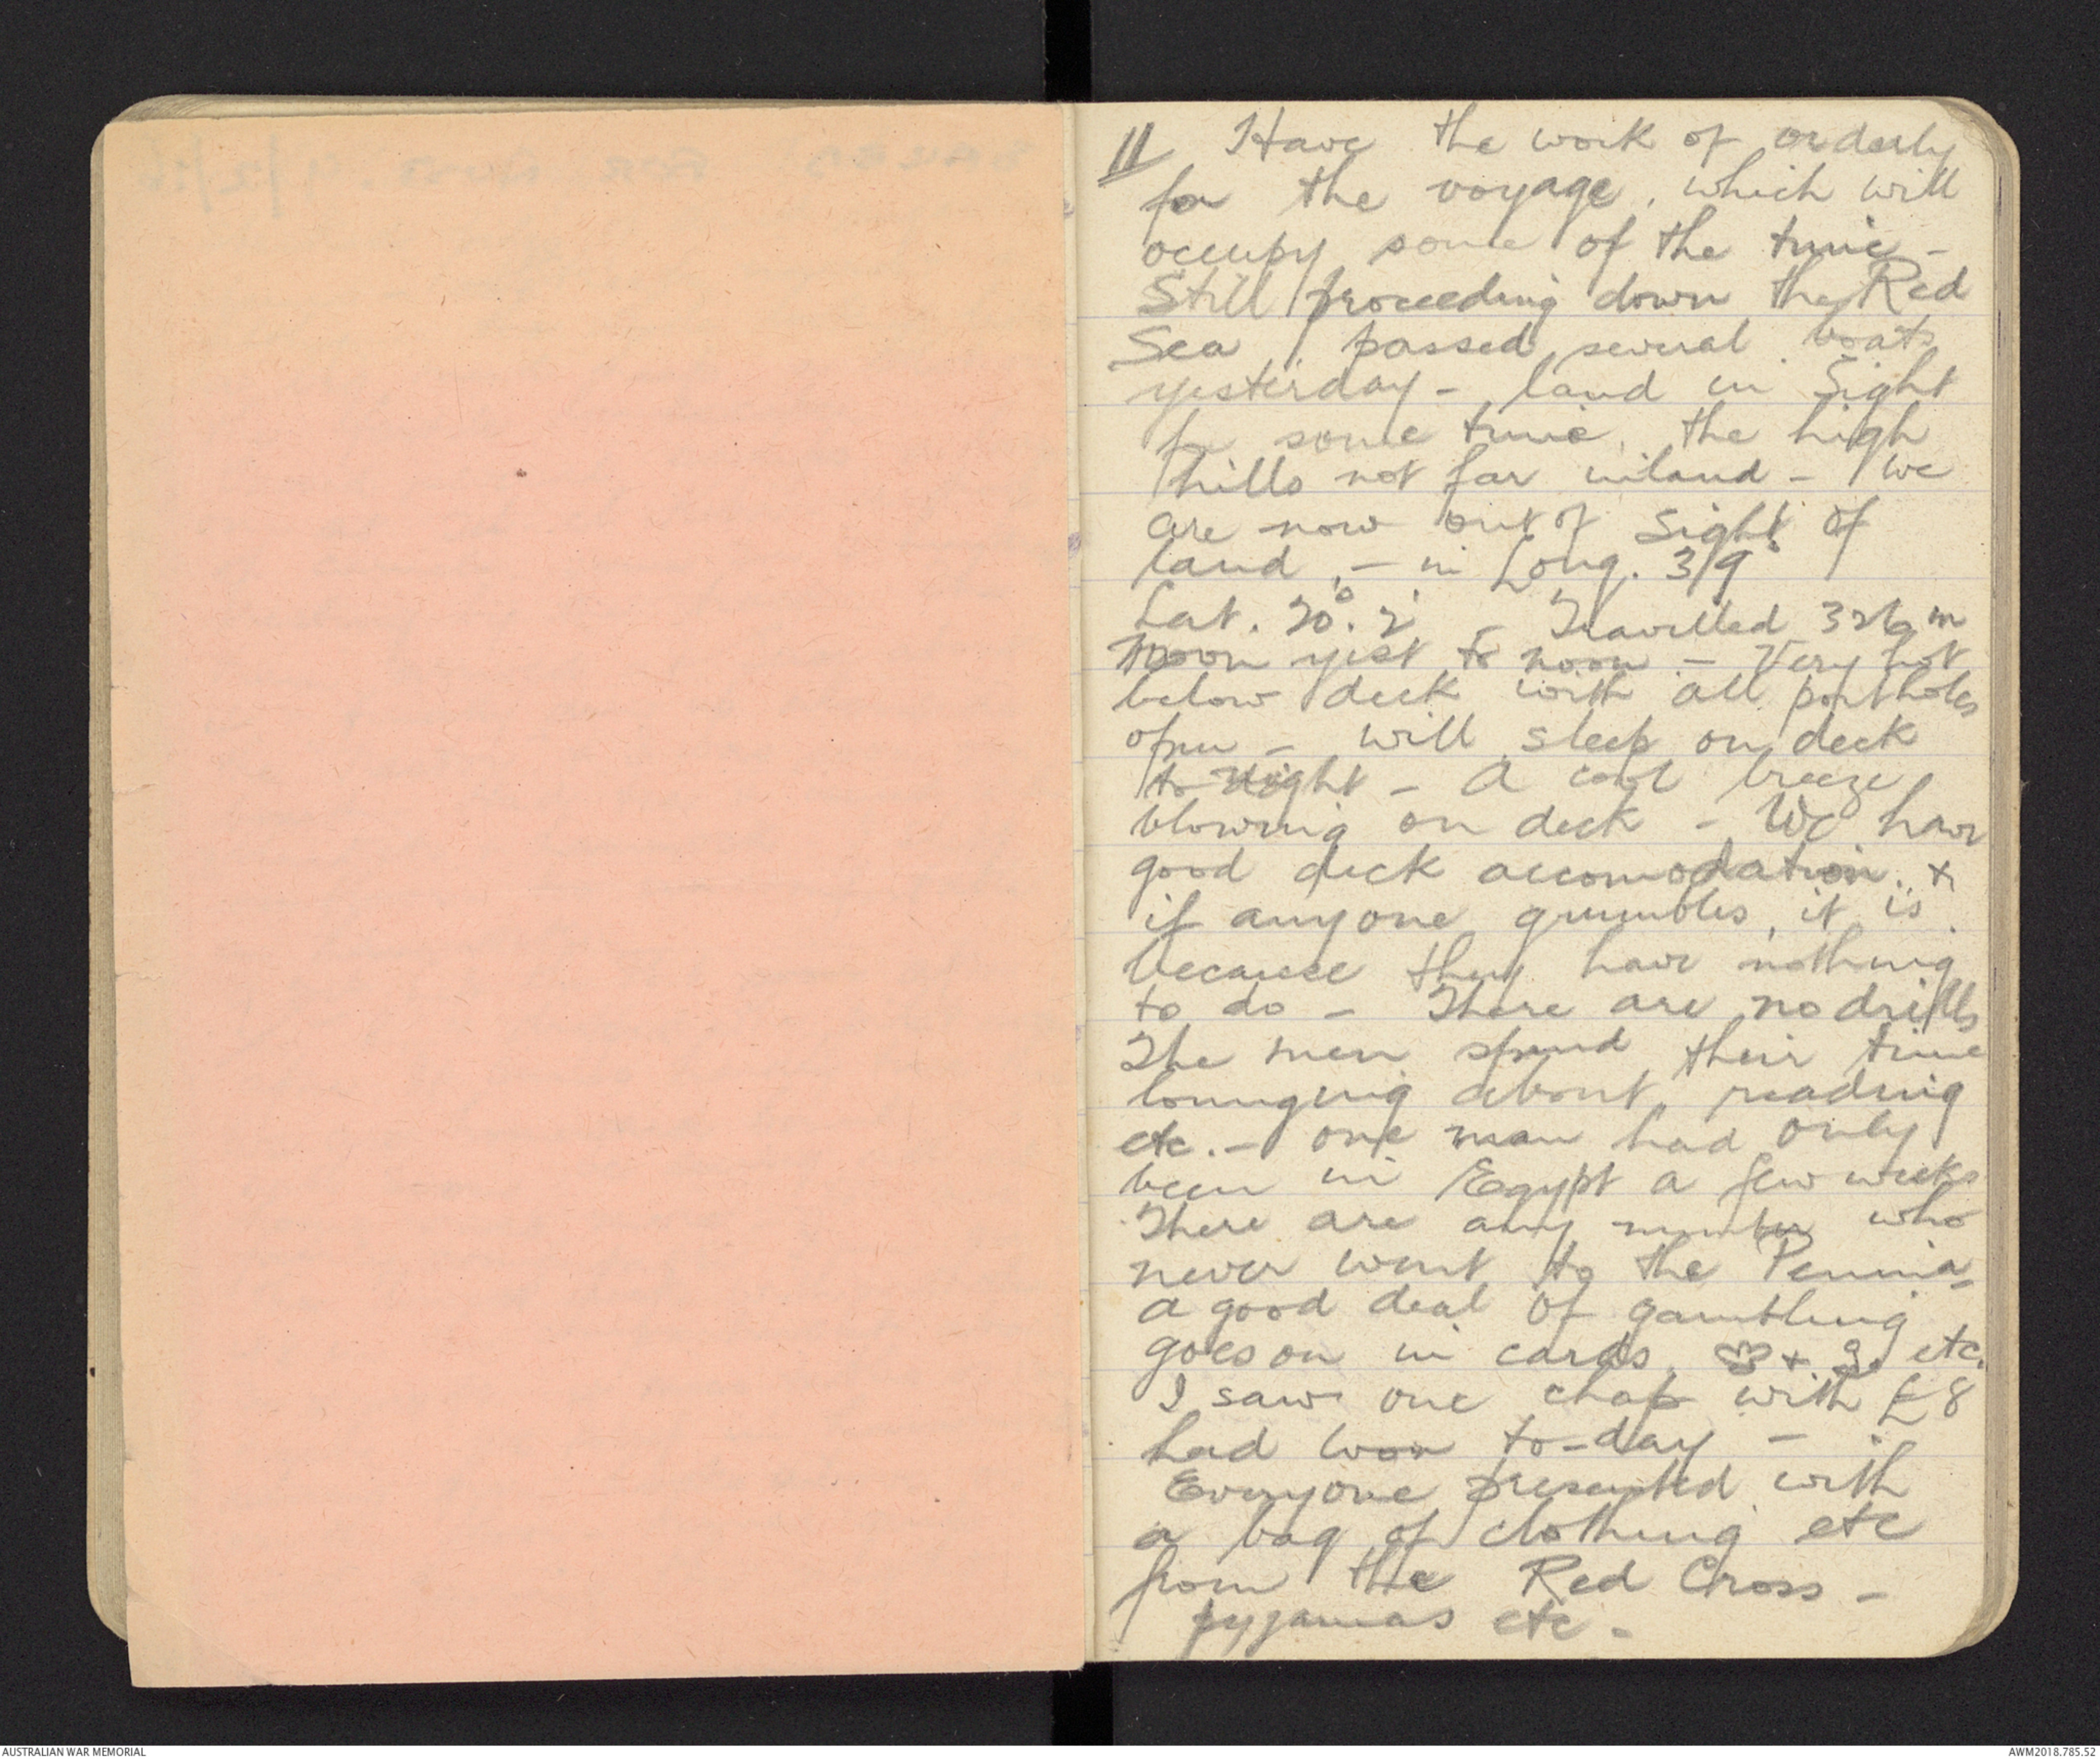 11 Have the work of orderly
for the voyage, which will
occupy some of the time -
Still proceeding down the Red
Sea, passed several boats
yesterday - land in sight
for some time, the high
hills not far inland - We
are now out of sight of
land, - in Long. 39°
Lat. 20°. 2' - Travelled 326 m
noon yest to noon - Very hot
below deck with all portholes
open - will sleep on deck
to night - A cool breeze
blowing on deck - We have
good deck accomodation, &
if anyone grumbles, it is
because they have nothing
to do - There are no drills
The men spend their time
lounging about, reading
etc. - one man had only
been in Egypt a few weeks
There are any number who
never went to the Penina-
a good deal of gambling
goes on in cards, & etc.
I saw one chap with £8
had won to-day -
Everyone presented with
a bag of clothing etc
from the Red Cross -
pyjamas etc -
AUSTRALIAN WAR MEMORIAL
AWM2018.785.52